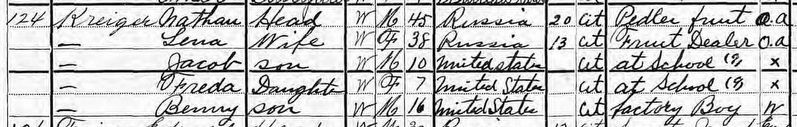 124 Kreiger Nathan Head W M 45 Russia 20 Cit Pedler fruit O.a
— Lena Wife W F 38 Russia 13 Cit Fruit Dealer O.a
— Jacob son W M 10 United States Cit at School x
— Freda Daughter W F 7 United States Cit at School x
— Benny son W M 16 United States Cit factory Boy W